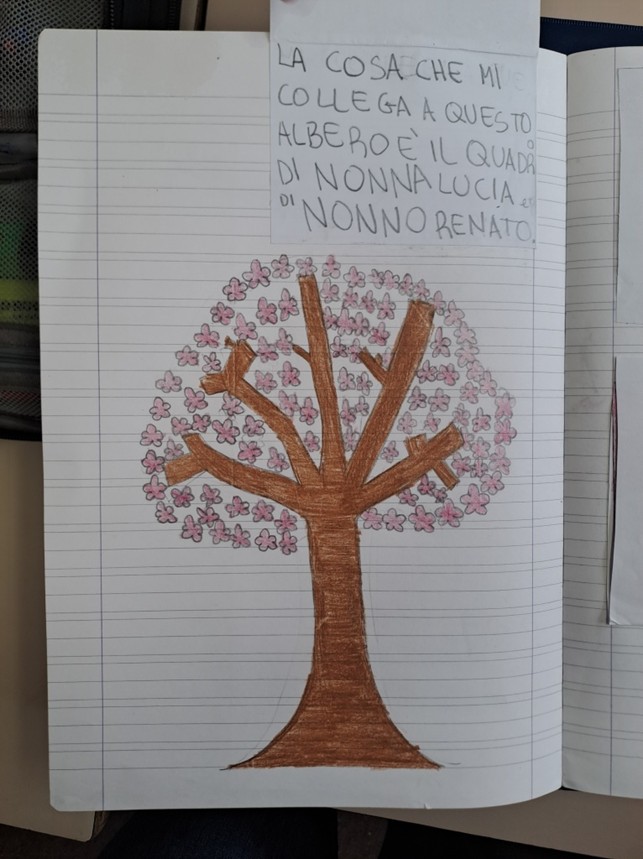 LA COSA CHE MI
COLLEGA A QUESTO
ALBERO È IL QUADRO
DI NONNA LUCIA e
DI NONNO RENATO.